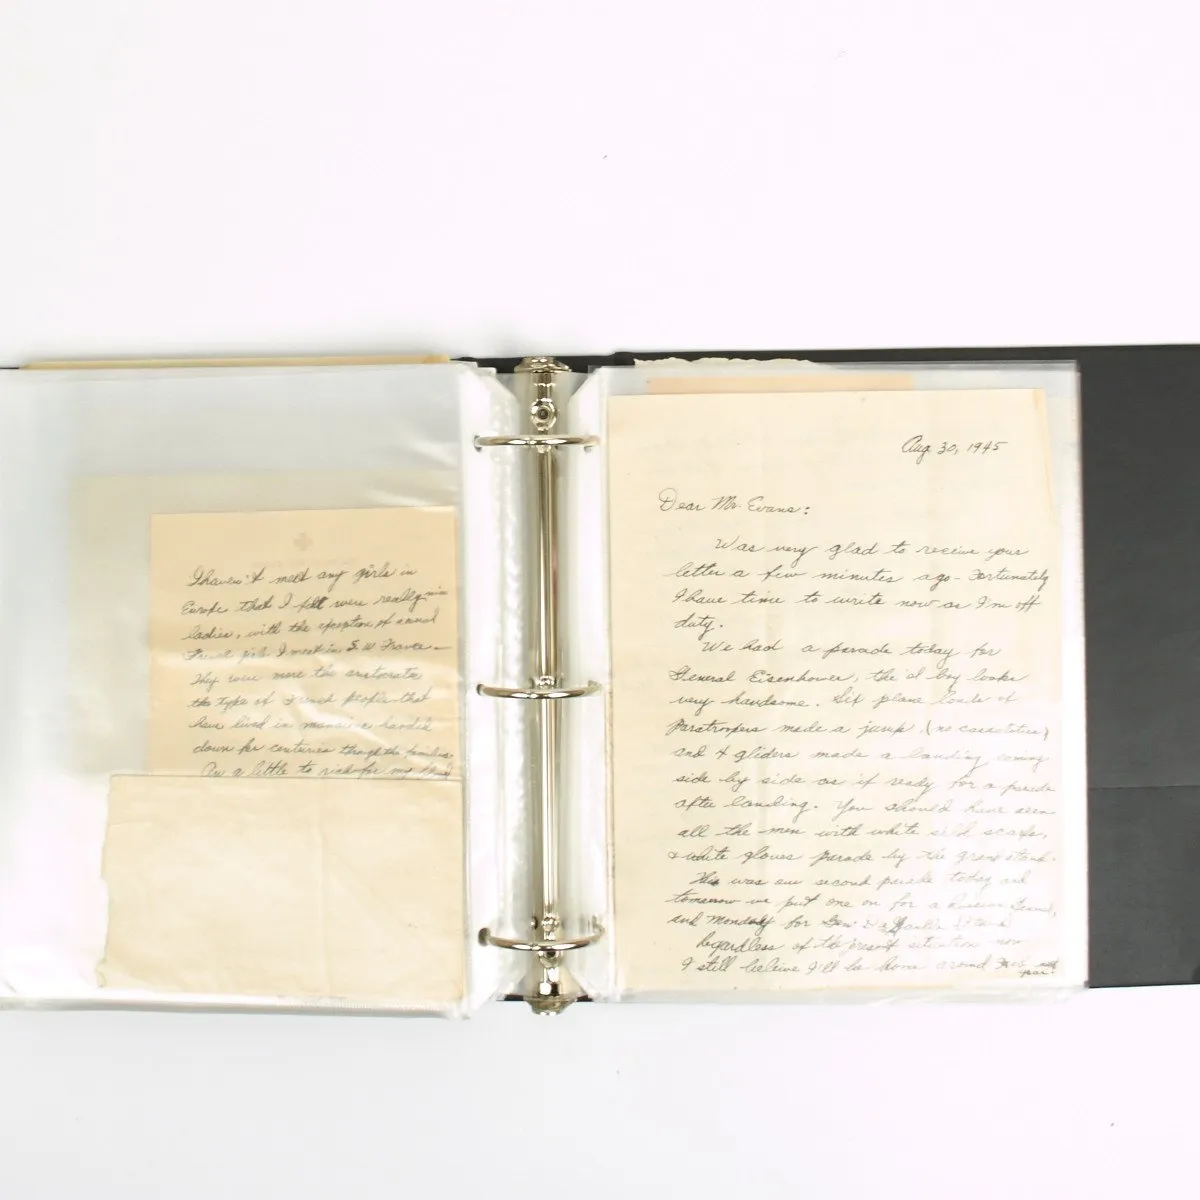 I haven't meet any girls in
Europe that I felt were really
ladies, with the exception of
French girls I meet in S.W. France -
They were more the aristocrats
the type of French people that
have lived in mansions handed
down for centuries through the families
a little to rich for my blood
Aug 30, 1945
Dear Mr Evans:
Was very glad to receive your
letter a few minutes ago - Fortunately
I have time to write now as I'm off
duty.
We had a parade today for
General Eisenhower, the 'ol boy looks
very handsome. Six plane loads of
Paratroopers made a jump (no casualties)
and 4 gliders made a landing coming
side by side as if ready for a parade
after landing. You should have seen
all the men with white silk scarfs,
& white gloves parade by the grand stand.
This was our second parade today and
tomorrow we put one on for a Russian
and Monday for Gen. De Gaulle
Regardless of the present situation now
I still believe I'll be home around next
year.